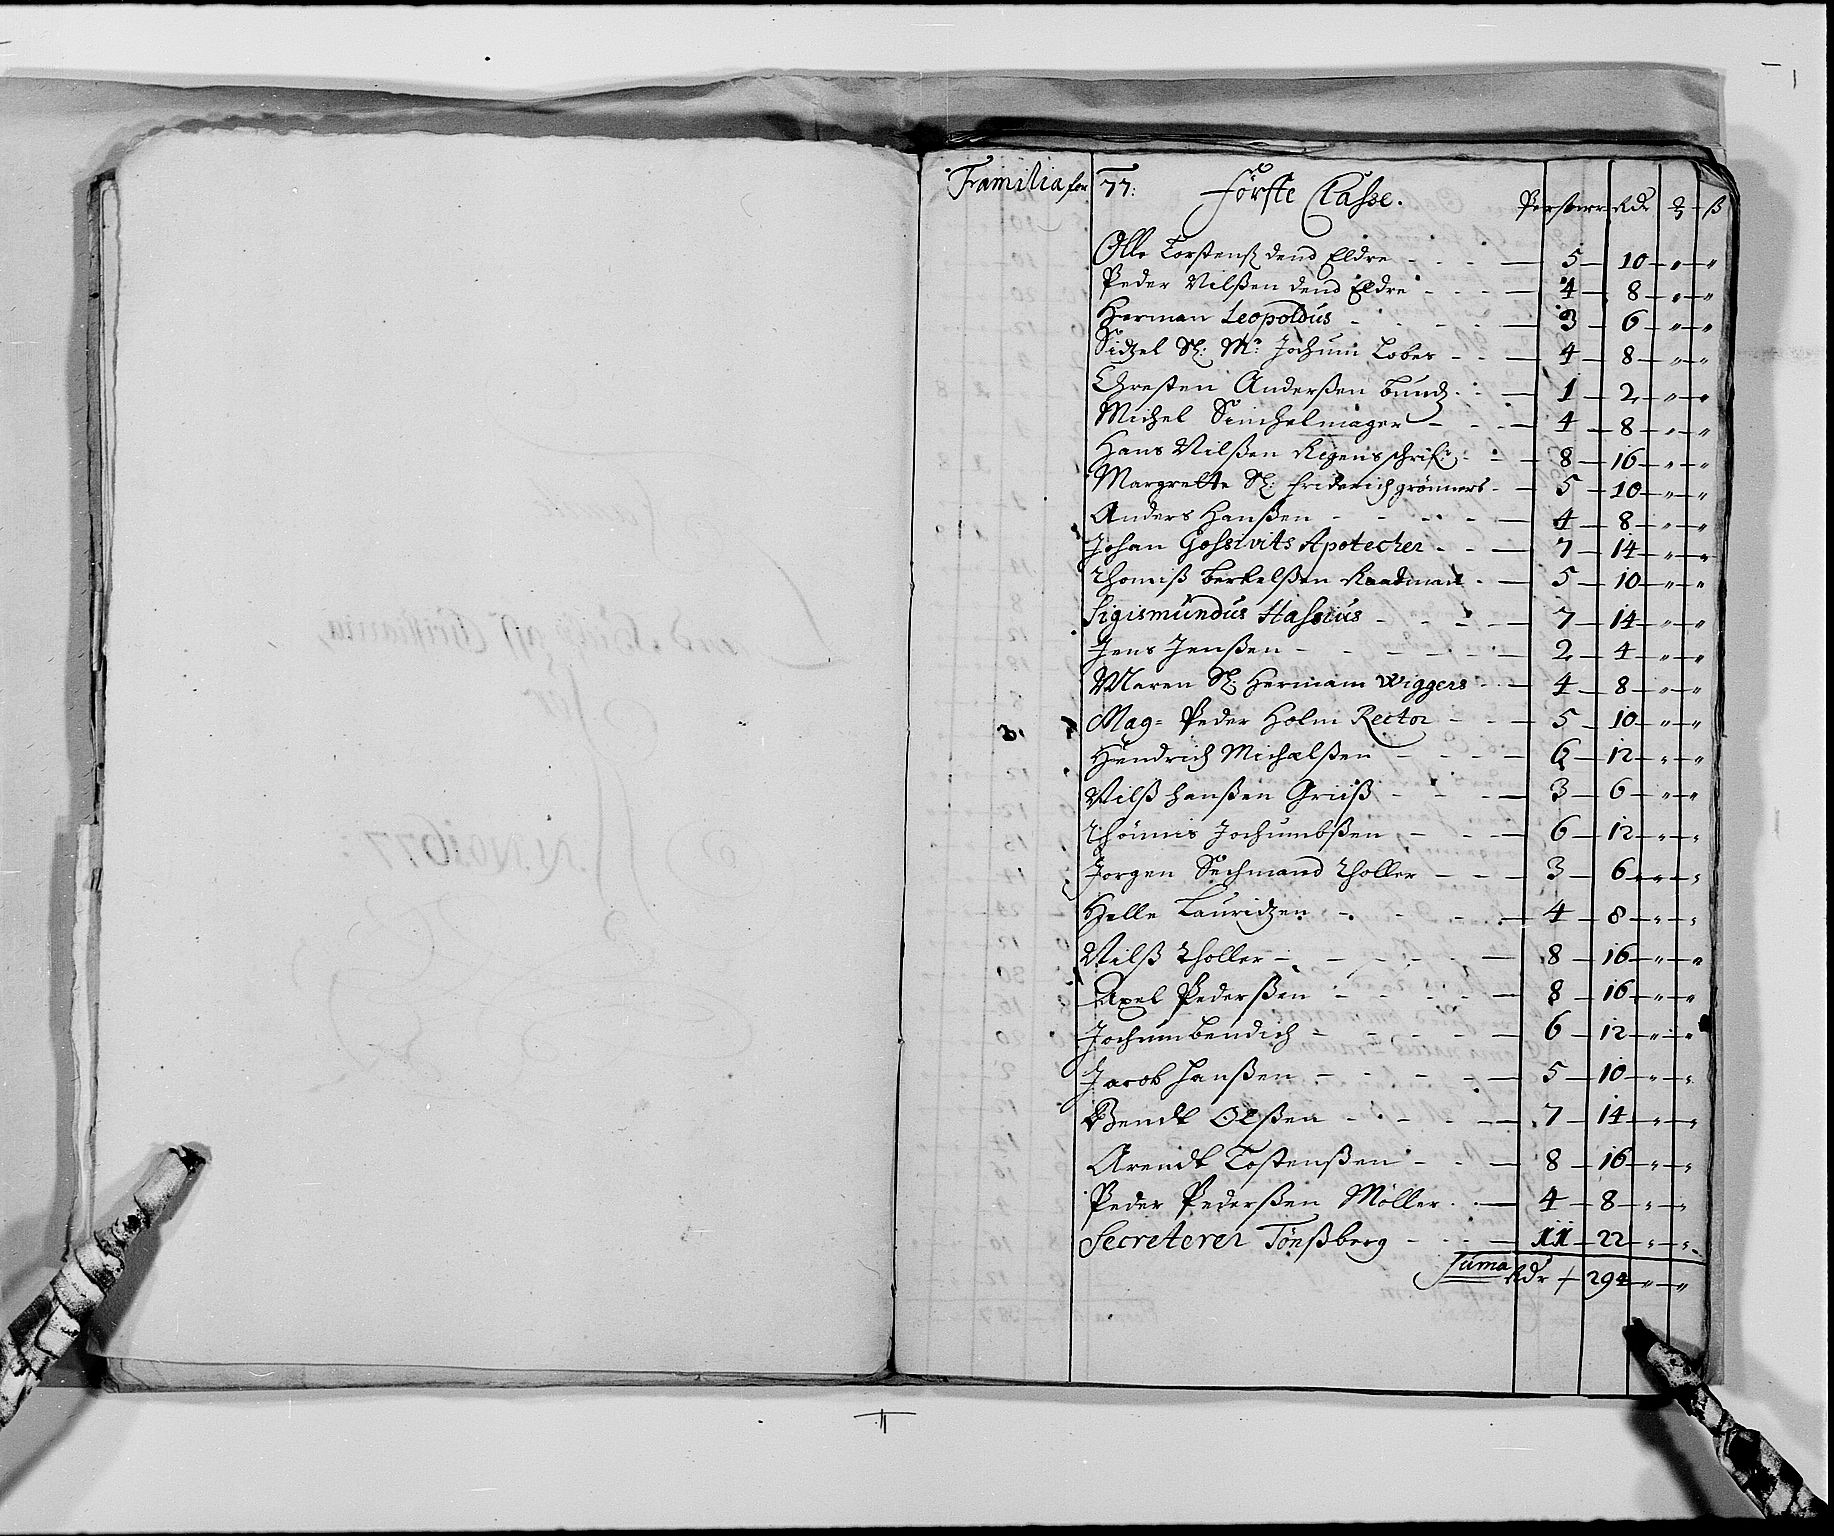 Familia for 77: Første Classe. Personer Rdr ß
Olle Torstens dend Eldre - 5 - 10 - " - "
Peder Nilßen dend Eldre - 4 - 8 - " - "
Herman Leopoldus - 3 - 6 - " - "
Sidzel Sl: Mr: Jochum Lobes - 4 - 8 - " - "
Chresten Anderßen Bundz - 1 - 2 - " - "
Michel Simchelmager - 4 - 8 - " - "
Hans Nilßen Regens schrif: - 8 - 16 - " - "
Margrette Sl: friderich grönners - 5 - 10 - " - "
Anders Hanßen - 4 - 8 - " - "
Johan Gossivits Apotecher - 7 - 14 - " - "
Thomiß Bertelßen Raadmand - 5 - 10 - " - "
Sigismundus Hassius - 7 - 14 - " - "
Jens Jenßen - 2 - 4 - " - "
Maren Sl: Hermam Wiggers - 4 - 8 - " - "
Mag= Peder Holm Rector - 5 - 10 - " - "
Hendrich Michælßen - 6 - 12 - " - "
Nilß Hanßen Griiß - 3 - 6 - " - "
Thönnis Jochumbßen - 6 - 12 - " - "
Jorgen Sechmand Tholler - 3 - 6 - " - "
Helle Lauridzen - 4 - 8 - " - "
Nilß Tholler - 8 - 16 - " - "
Axel Pederßen - 8 - 16 - " - "
Jochum Bendich - 6 - 12 - " - "
Jacob Hanßen - 5 - 10 - " - "
Bendt Olßen - 7 - 14 - " - "
Arendt Tostenßen - 8 - 16 - " - "
Peder Pederßen Möller - 4 - 8 - " - "
Secreterer Tönßberg - 11 - 22 - " - "
Suma Rdr 294 - " - "